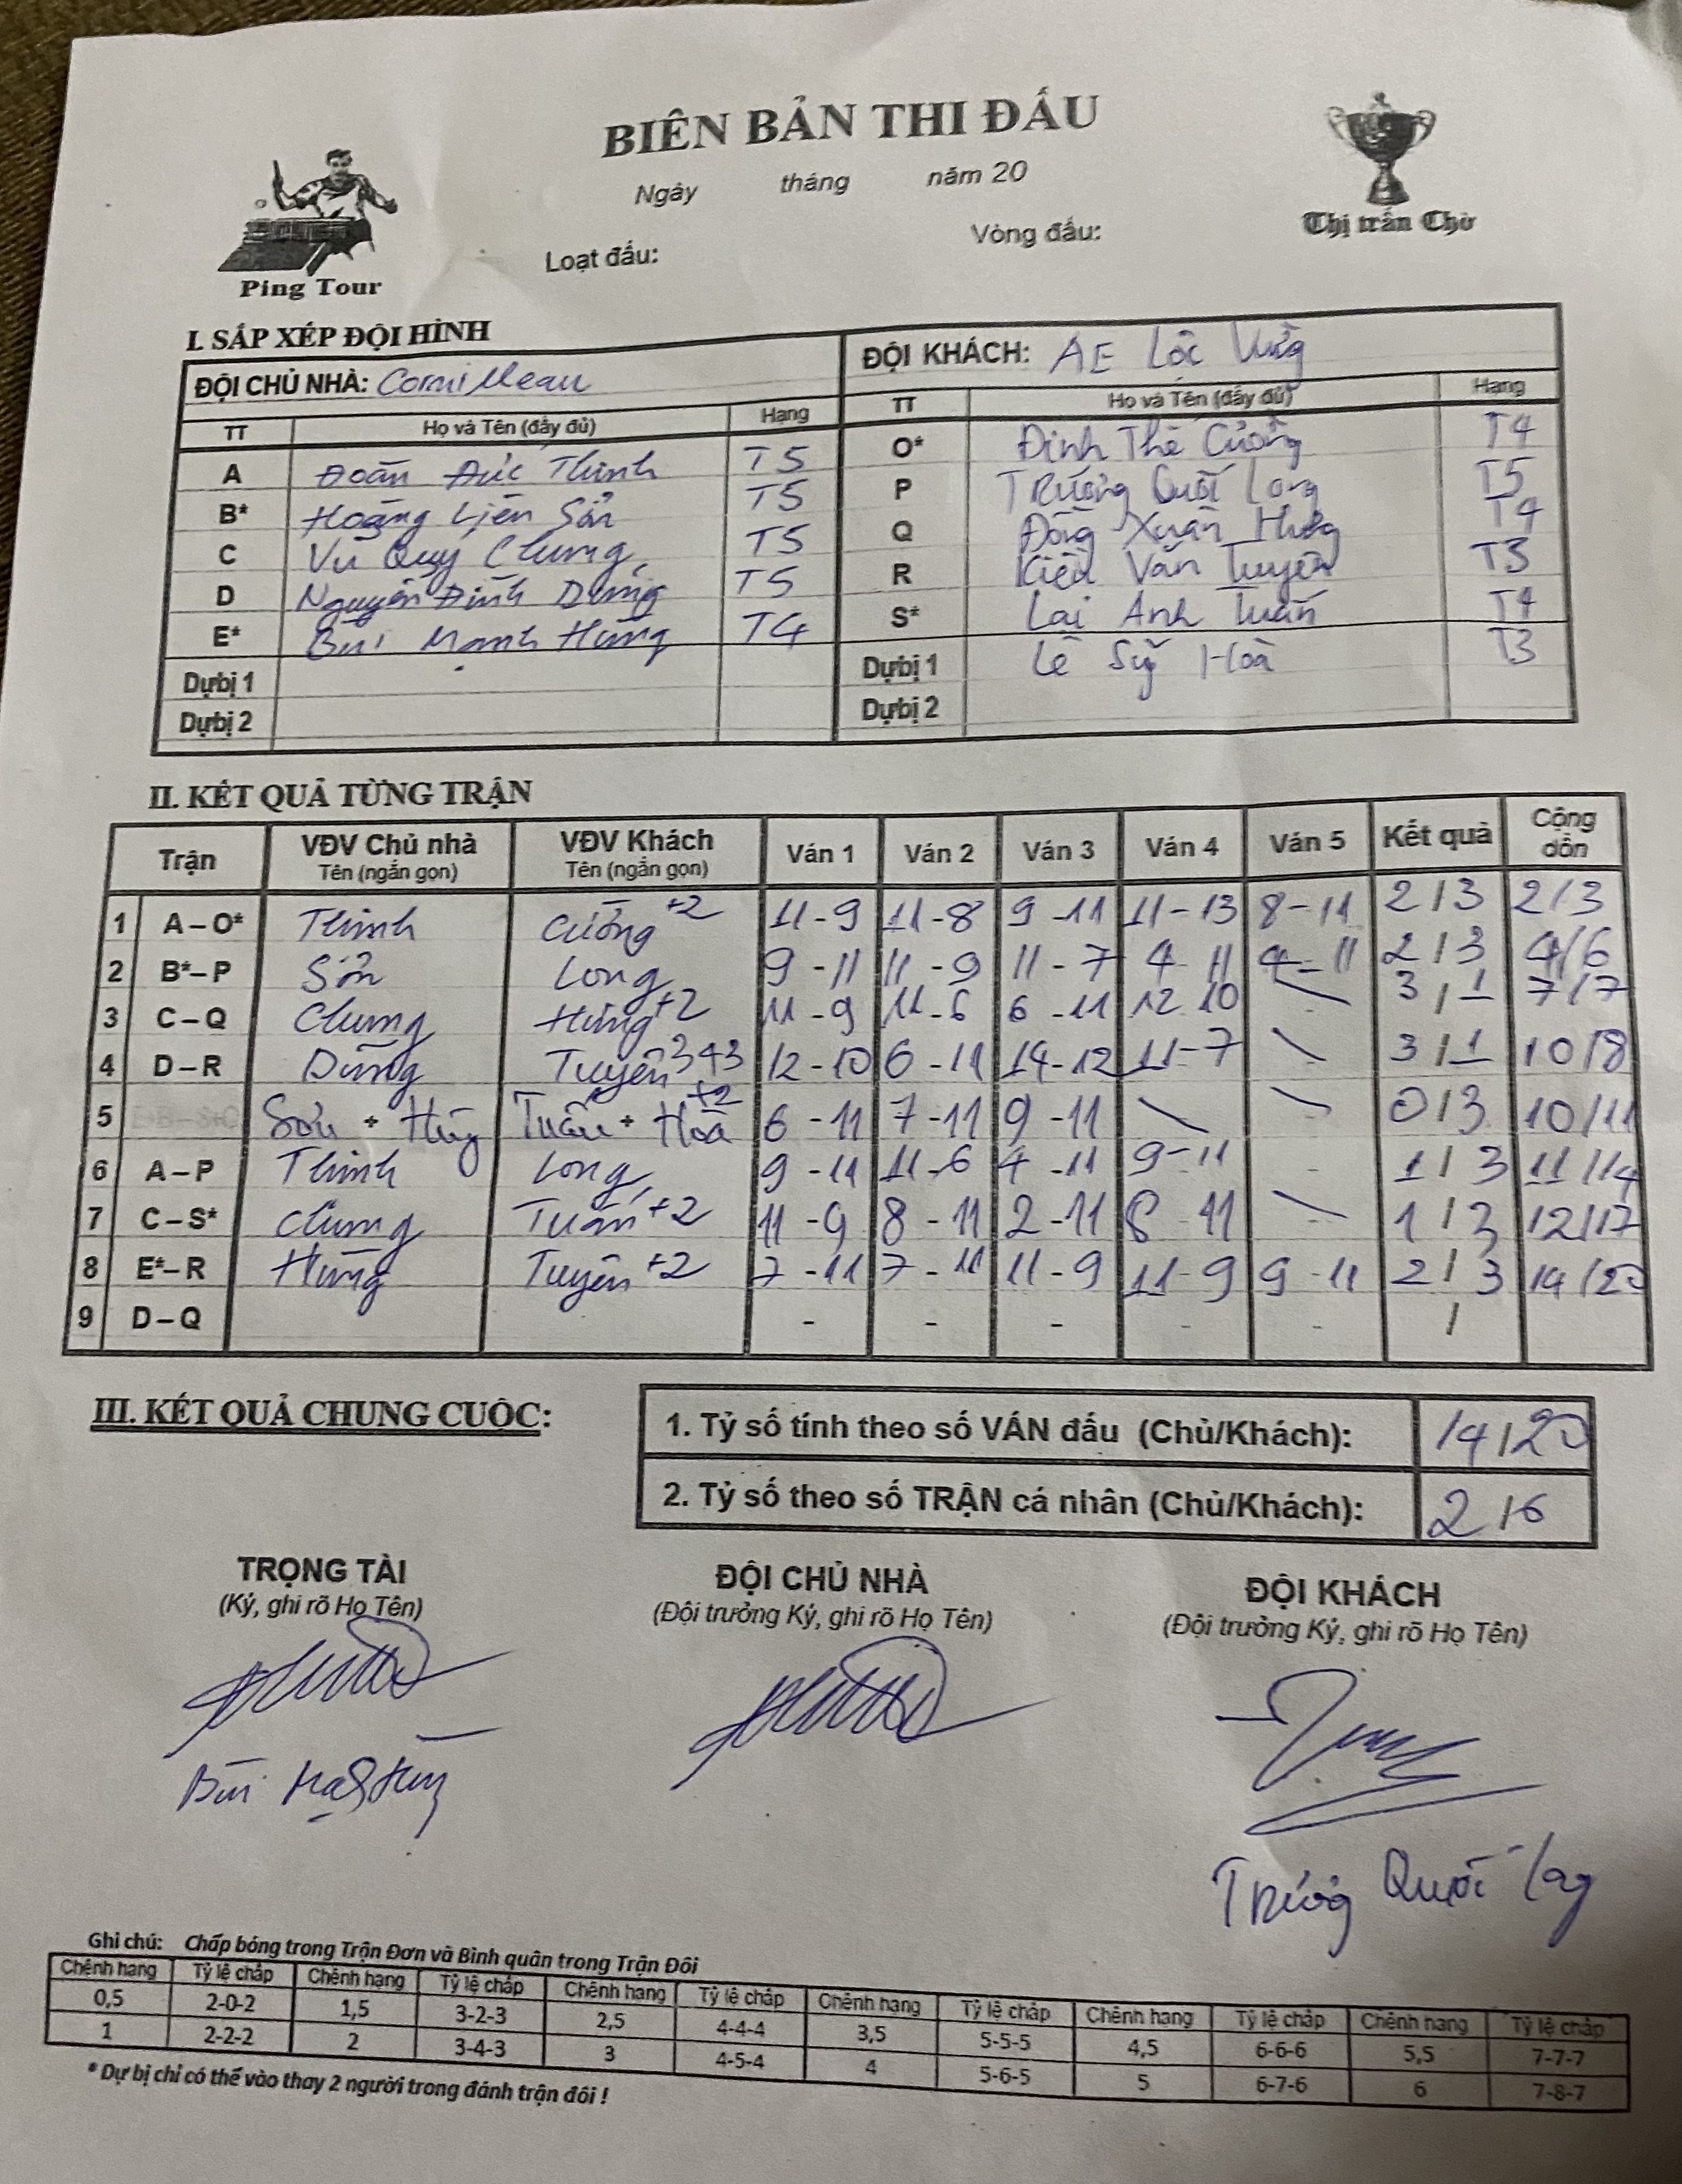 BIÊN BẢN THI ĐẤU
Ngày tháng năm 20
Loạt đấu: Vòng đấu:
Ping Tour
Thị trấn Chờ
I. SẮP XẾP ĐỘI HÌNH
ĐỘI CHỦ NHÀ: Cornilleau ĐỘI KHÁCH: AE Lộc Vừng
TT Họ và Tên (đầy đủ) Hạng TT Họ và Tên (đầy đủ) Hạng
A Đoàn Đức Thịnh T5 O* Đinh Thế Cường T4
B* Hoàng Liên Sơn T5 P Trương Quốc Long T5
C Vũ Quý Chung T5 Q Đồng Xuân Hưng T4
D Nguyễn Đình Dũng T5 R Kiều Văn Tuyên T3
E* Bùi Mạnh Hùng T4 S* Lại Anh Tuấn T4
Dự bị 1 Dự bị 1 Lê Sỹ Hoà T3
Dự bị 2 Dự bị 2
II. KẾT QUẢ TỪNG TRẬN
Trận VĐV Chủ nhà Tên (ngắn gọn) VĐV Khách Tên (ngắn gọn) Ván 1 Ván 2 Ván 3 Ván 4 Ván 5 Kết quả Cộng dồn
1 A – O* Thịnh Cường +2 11-9 11-8 9-11 11-13 8-11 2/3 2/3
2 B* – P Sơn Long 9-11 11-9 11-7 4-11 4-11 2/3 4/6
3 C – Q Chung Hưng +2 11-9 11-6 6-11 12-10 - 3/1 7/7
4 D – R Dũng Tuyên 343 12-10 6-11 14-12 11-7 3/1 10/8
5 Sơn + Hùng Tuấn + Hoà +2 6-11 7-11 9-11 0/3 10/11
6 A – P Thịnh Long 9-11 11-6 4-11 9-11 - 1/3 11/14
7 C – S* Chung Tuấn +2 11-9 8-11 2-11 8-11 - 1/3 12/17
8 E* – R Hùng Tuyên +2 7-11 7-11 11-9 11-9 9-11 2/3 14/20
9 D – Q - - - - - /
III. KẾT QUẢ CHUNG CUỘC:
1. Tỷ số tính theo số VÁN đấu (Chủ/Khách): 14/20
2. Tỷ số theo số TRẬN cá nhân (Chủ/Khách): 2/6
TRỌNG TÀI ĐỘI CHỦ NHÀ ĐỘI KHÁCH
(Ký, ghi rõ Họ Tên) (Đội trưởng Ký, ghi rõ Họ Tên) (Đội trưởng Ký, ghi rõ Họ Tên)
Bùi Mạnh Hùng
Trương Quốc Long
Ghi chú: Chấp bóng trong Trận Đơn và Bình quân trong Trận Đôi
Chênh hạng Tỷ lệ chấp Chênh hạng Tỷ lệ chấp Chênh hạng Tỷ lệ chấp Chênh hạng Tỷ lệ chấp Chênh hạng Tỷ lệ chấp Chênh hạng Tỷ lệ chấp
0,5 2-0-2 1,5 3-2-3 2,5 4-4-4 3,5 5-5-5 4,5 6-6-6 5,5 7-7-7
1 2-2-2 2 3-4-3 3 4-5-4 4 5-6-5 5 6-7-6 6 7-8-7
* Dự bị chỉ có thể vào thay 2 người trong đánh trận đôi !